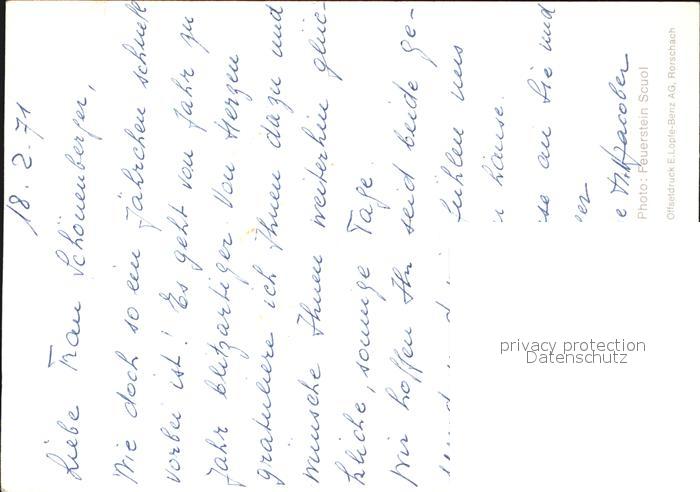 18. 2. 71
Liebe Frau Schönenberger,
Wie doch so ein Jährchen schnell
vorbei ist! Es geht von Jahr zu
Jahr blitzartiger. Von Herzen
gratuliere ich Ihnen dazu und
wünsche Ihnen weiterhin glück-
kliche, sonnige Tage.
Wir hoffen Ihr seid beide ge-
fühlen uns
hause.
se an Sie und
er
Jacober
Photo: Feuerstein Scuol
Offsetdruck E. Löpfe-Benz AG, Rorschach
privacy protection
Datenschutz